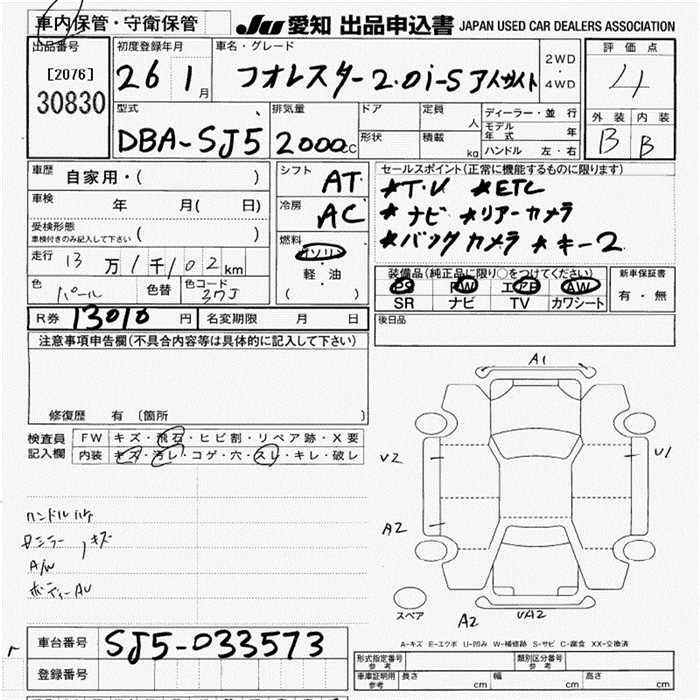 車内保管・守衛保管
JU 愛知 出品申込書 JAPAN USED CAR DEALERS ASSOCIATION
出品番号 初度登録年月 車名・グレード 2WD・4WD 評価点
[2076] 30830 26 1月 フォレスター2.0i-S アイサイト 4
型式 排気量 ドア 定員 人 ディーラー・並行 外装 内装
DBA-SJ5 2000cc 形状 積載 kg モデル年式 年 B B
ハンドル 左・右
車歴 自家用・( ) シフト AT セールスポイント(正常に機能するものに限ります)
車検 年 月( 日) 冷房 AC ★T.V ★ETC
受検形態 車検付きのみ記入して下さい ( ) ★ナビ ★リアーカメラ
走行 13万1千102km 燃料 ガソリン ★バックカメラ ★キー2
色 パール 色替 色コード 37J 軽・油 ( )
装備品(純正品に限り○をつけてください) 新車保証書
PS PW エアB AW 有・無
SR ナビ TV カワシート
R券 13010円 名変期限 月 日 後日品
注意事項申告欄(不具合内容等は具体的に記入して下さい)
修復歴 有 (箇所
検査員記入欄 FW キズ・飛石・ヒビ割・リペア跡・X要
内装 キズ・汚レ・コゲ・穴・スレ・キレ・破レ
A1
V2 U1
A2
ハンドル
キズ
A/W
ボディーAU
スペア A2 UA2
A-キズ E-エクボ U-凹み W-補修跡 S-サビ C-腐食 XX-交換済
車台番号 SJ5-033573
登録番号
形式指定番号 参考 類別区分番号 参考
車庫証明用 参考 長さ cm 幅 cm 高さ cm